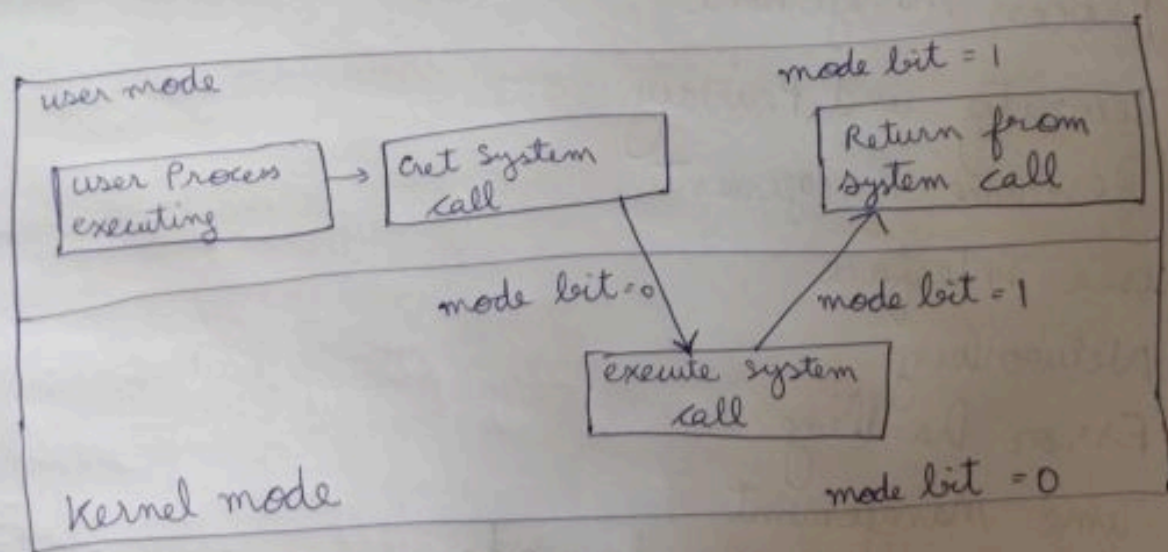 user mode
mode bit = 1
user Process
executing
Get System
call
Return from
system call
mode bit = 0
mode bit = 1
execute system
call
Kernel mode
mode bit = 0